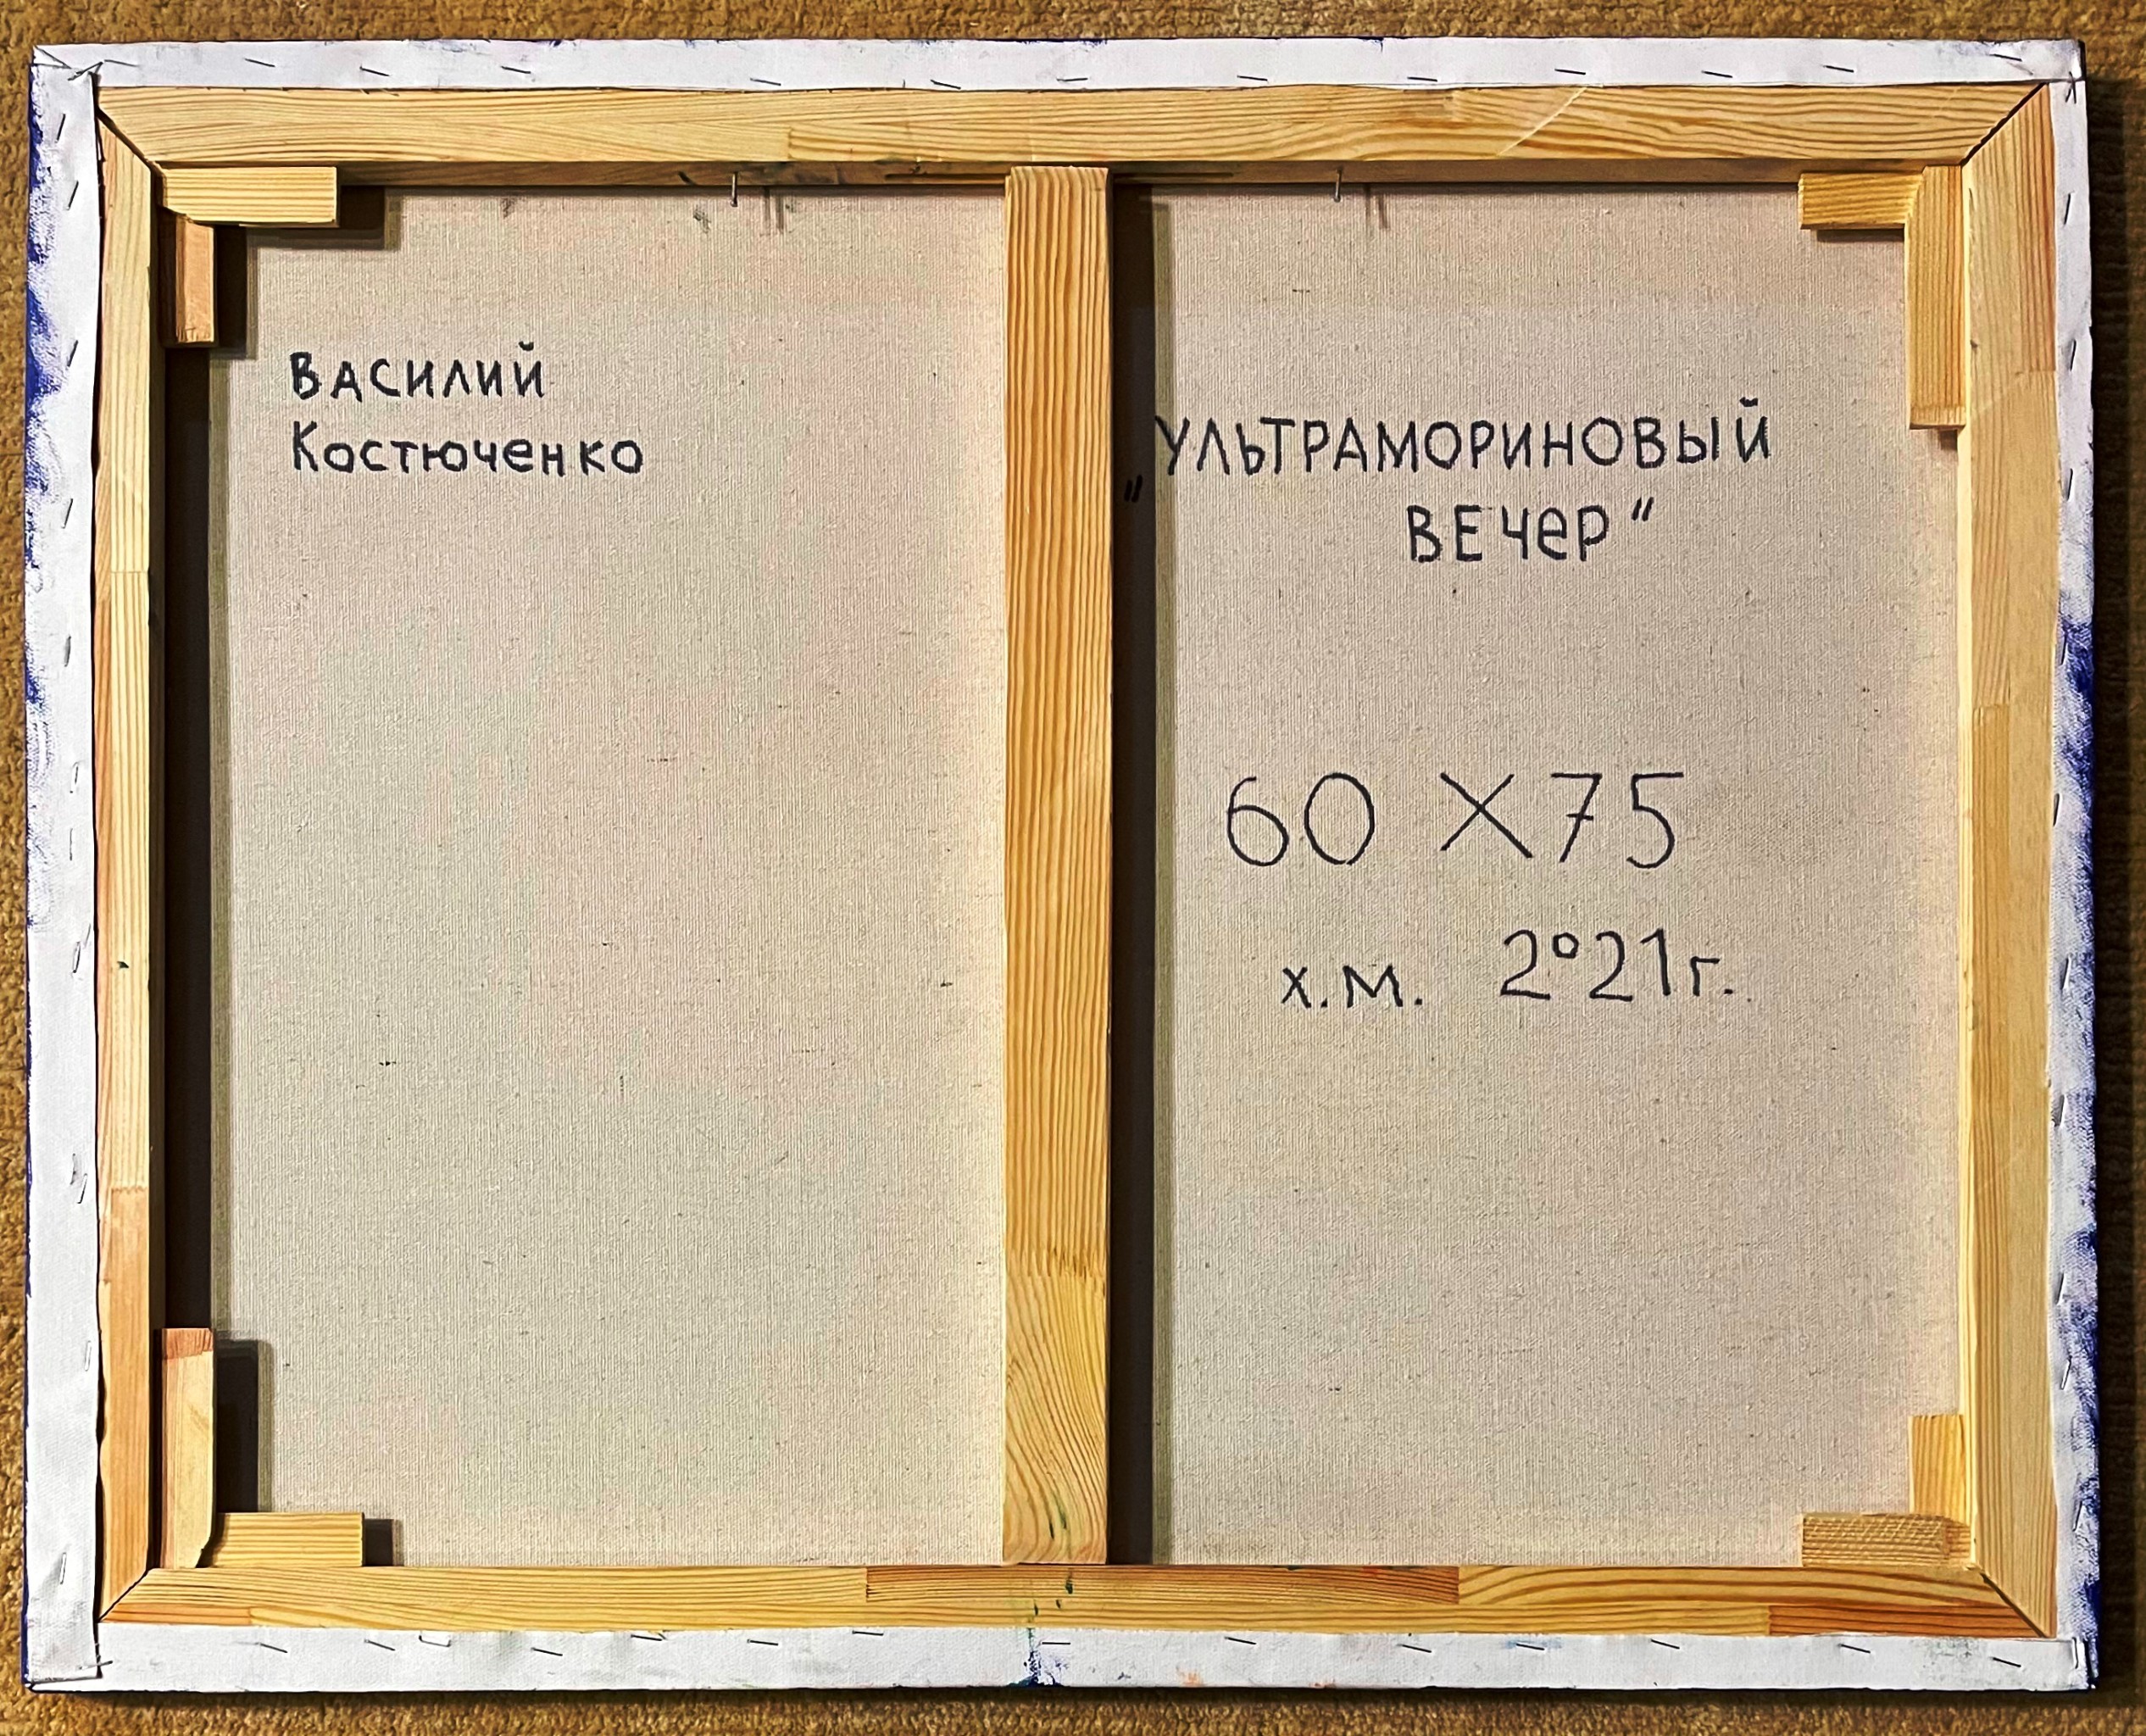 Василий
Костюченко
„Ультрамориновый
вечер“
60 X 75
х.м. 2021г.